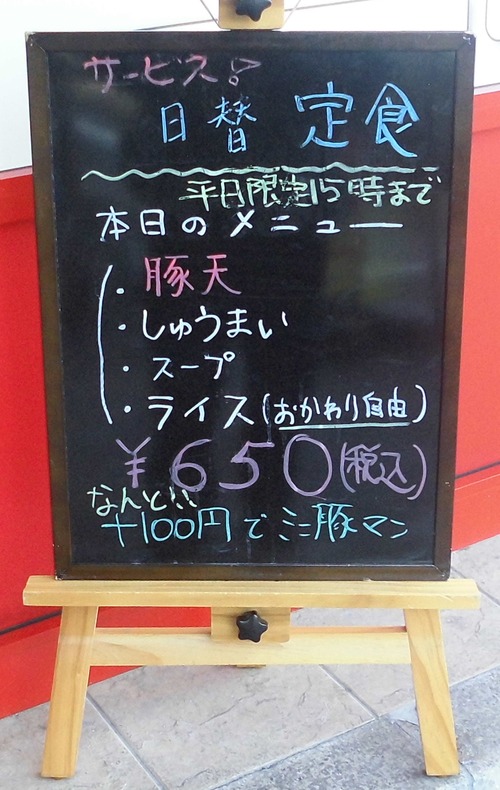 サービス!
日替 定食
平日限定15時まで
本日のメニュー
・豚天
・しゅうまい
・スープ
・ライス(おかわり自由)
¥650(税込)
なんと!!
+100円でミニ豚マン